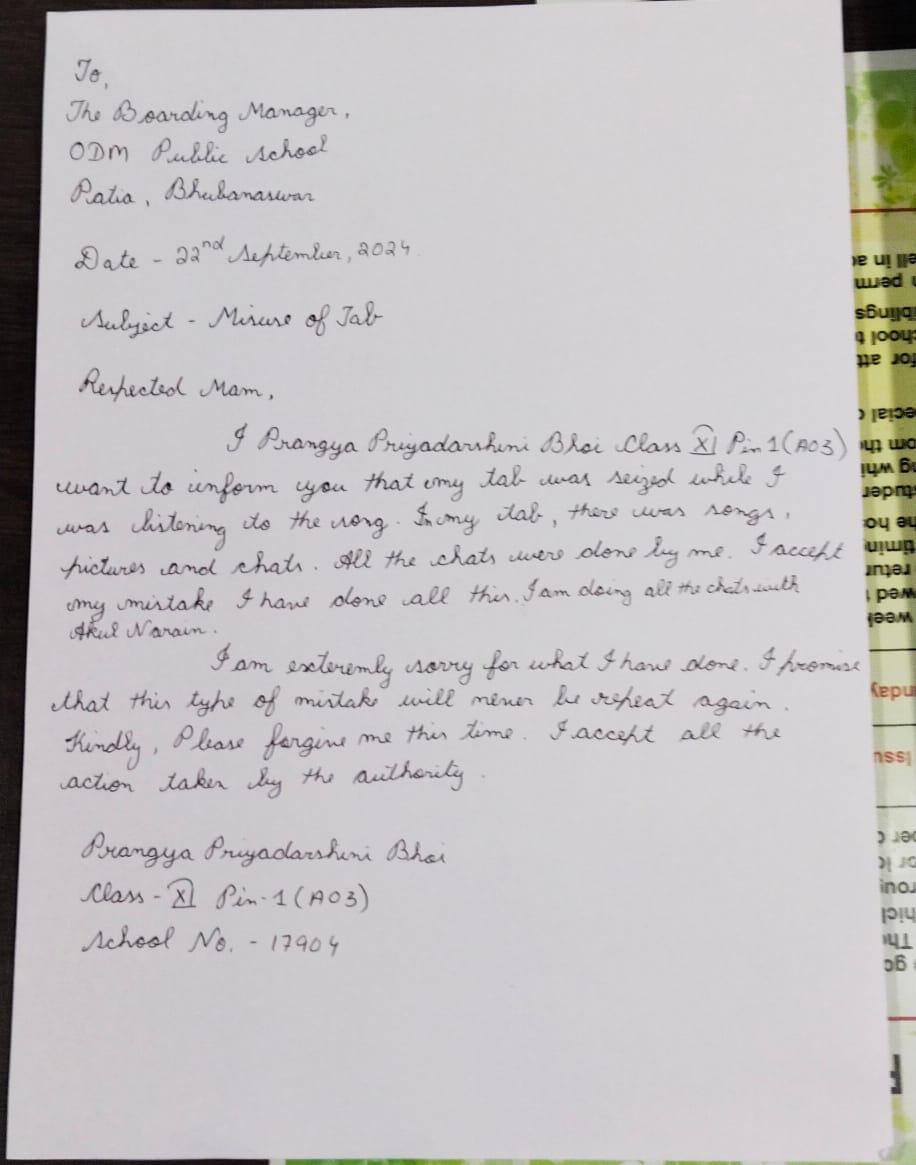 To,
The Boarding Manager,
ODM Public School
Patia, Bhubanaswar
Date - 22nd September, 2024.
Subject - Misuse of Tab
Respected Mam,
I Prangya Priyadarshini Bhoi Class XI Pin 1(A03)
want to inform you that my tab was seized while I
was listening to the song. In my tab, there was songs,
pictures and chats. All the chats were done by me. I accept
my mistake I have done all this. I am doing all the chats with
Akul Narain.
I am exteremly sorry for what I have done. I promise
that this type of mistake will never be repeat again.
Kindly, Please forgive me this time. I accept all the
action taken by the authority.
Prangya Priyadarshini Bhoi
Class - XI Pin-1(A03)
School No. - 17904